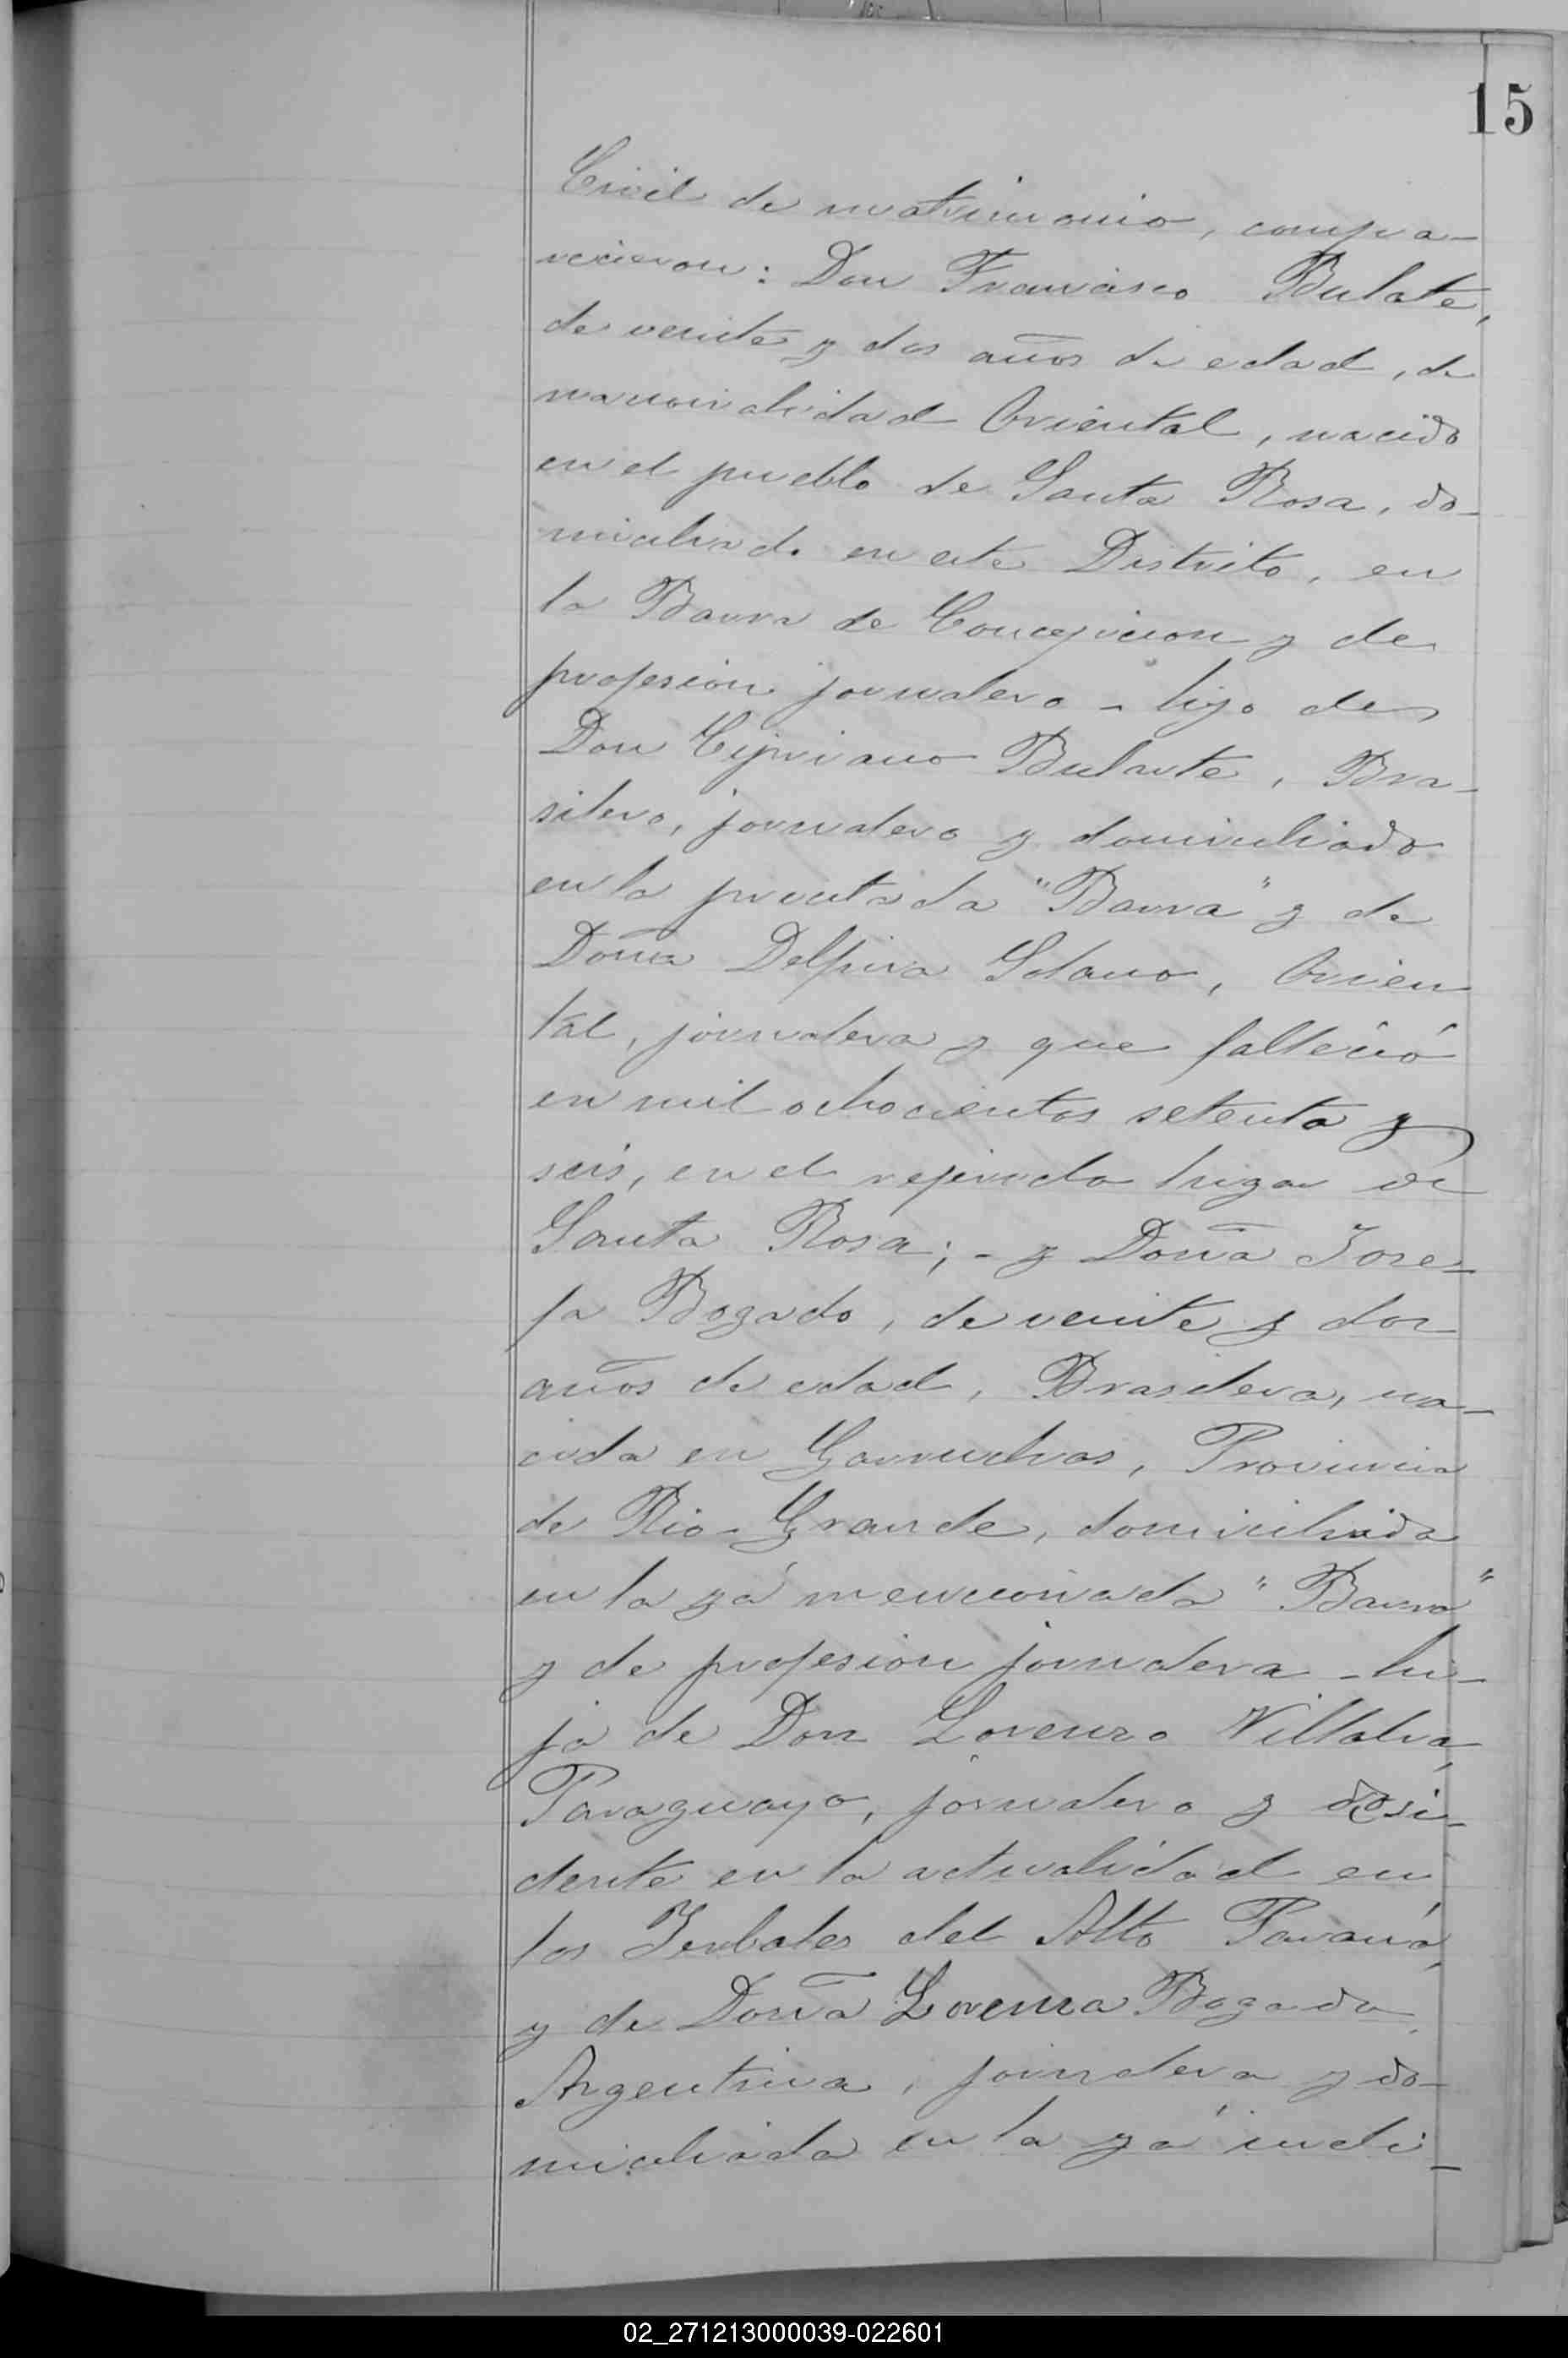 15
Civil de matrimonio, compa-
recieron: Don Francisco Bulate,
de veinte y dos años de edad, de
nacionalidad Oriental, nacido
en el pueblo de Santa Rosa, do-
miciliado en este Distrito, en
la Barra de Concepcion y de
profesion jornalero - hijo de
Don Cipriano Bularte, Bra-
silero, jornalero y domiciliado
en la precitada "Barra" y de
Doña Delfina Solano, Orien
tal, jornalera y que falleció
en mil ochocientos setenta y
seis, en el referido lugar de
Santa Rosa; - y Doña Jose-
fa Bogado, de veinte y dos
años de edad, Brasilera, na-
cida en Garruchos, Provincia
de Rio-Grande, domiciliada
en la yá mencionada "Barra"
y de profesion jornalera - hi-
ja de Don Lorenzo Villalva,
Paraguayo, jornalero y resi-
dente en la actualidad en
los Yerbales del Alto Paraná,
y de Doña Lorenza Bogado,
Argentina, jornalera y do-
miciliada en la yá indi-
02_271213000039-022601